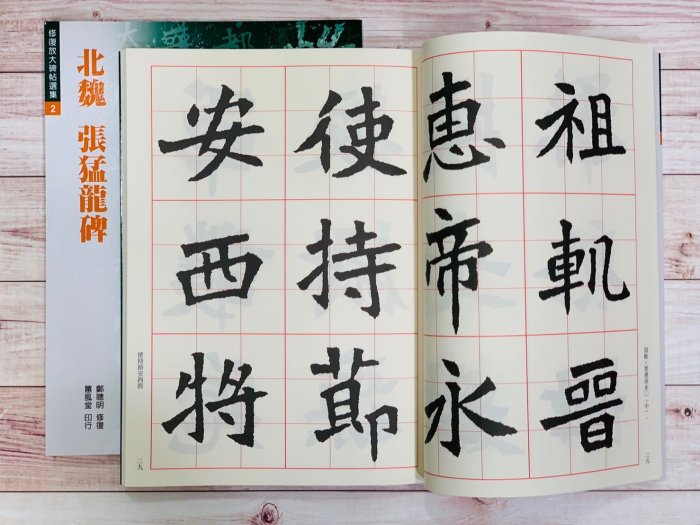 修復放大碑帖選集 2
北魏 張猛龍碑
鄭聰明 修復
蕙風堂 印行
祖軌晉
惠帝永
祖軌,晉惠帝永□(中),
二八
使持節
安西將
使持節安西將
二九